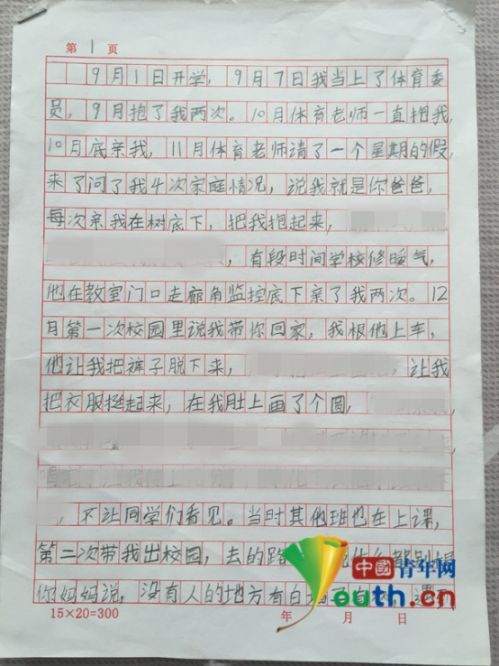 第 1 页
9月1日开学，9月7日我当上了体育委
员，9月抱了我两次。10月体育老师一直抱我，
10月底亲我，11月体育老师请了一个星期的假，
来了问了我4次家庭情况，说我就是你爸爸，
每次亲我在树底下，把我抱起来，
，有段时间学校修暖气，
他在教室门口走廊角监控底下亲了我两次。12
月第一次校园里说我带你回家，我根他上车，
他让我把裤子脱下来，，让我
把衣服挺起来，在我肚上画了个圆，
，不让同学们看见。当时其他班也在上课，
第二次带我出校园，去的路
你妈妈说，没有人的地方有白
15×20=300 年 月 日
中國青年网
Youth.cn